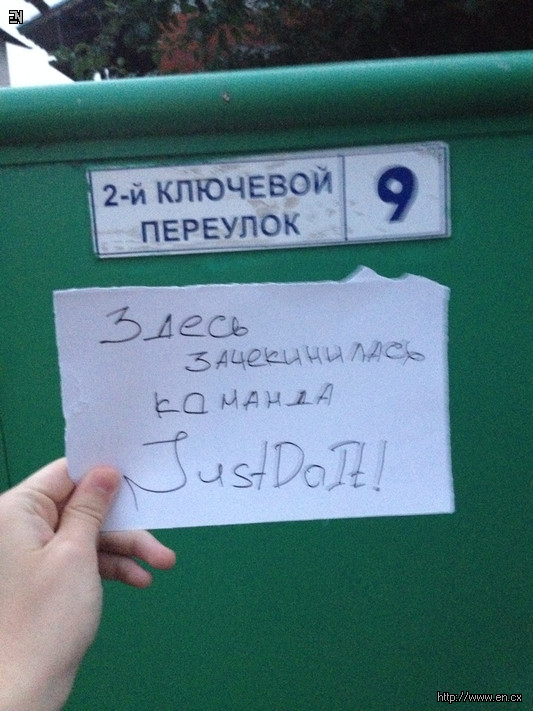 EN
2-й КЛЮЧЕВОЙ
ПЕРЕУЛОК
9
Здесь
зачекинилась
команда
JustDoIt!
http://www.en.cx